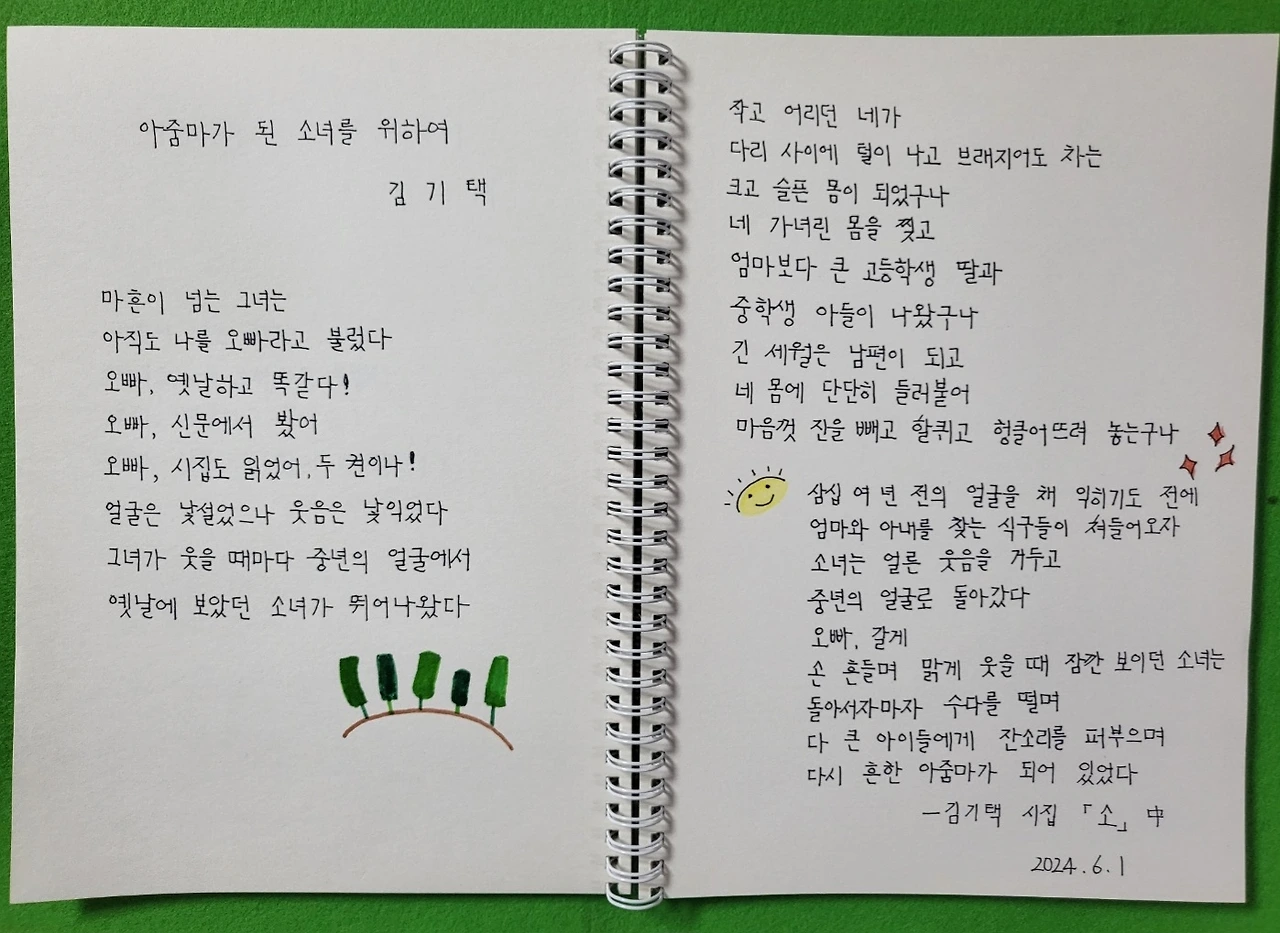 아줌마가 된 소녀를 위하여
김 기 택
마흔이 넘는 그녀는
아직도 나를 오빠라고 불렀다
오빠, 옛날하고 똑같다!
오빠, 신문에서 봤어
오빠, 시집도 읽었어, 두 권이나!
얼굴은 낯설었으나 웃음은 낯익었다
그녀가 웃을 때마다 중년의 얼굴에서
옛날에 보았던 소녀가 뛰어나왔다
작고 어리던 네가
다리 사이에 털이 나고 브래지어도 차는
크고 슬픈 몸이 되었구나
네 가녀린 몸을 찢고
엄마보다 큰 고등학생 딸과
중학생 아들이 나왔구나
긴 세월은 남편이 되고
네 몸에 단단히 들러붙어
마음껏 잔을 빼고 할퀴고 헝클어뜨려 놓는구나
삼십 여 년 전의 얼굴을 채 익히기도 전에
엄마와 아내를 찾는 식구들이 쳐들어오자
소녀는 얼른 웃음을 거두고
중년의 얼굴로 돌아갔다
오빠, 갈게
손 흔들며 맑게 웃을 때 잠깐 보이던 소녀는
돌아서자마자 수다를 떨며
다 큰 아이들에게 잔소리를 퍼부으며
다시 흔한 아줌마가 되어 있었다
—김기택 시집 「소」 中
2024.6.1